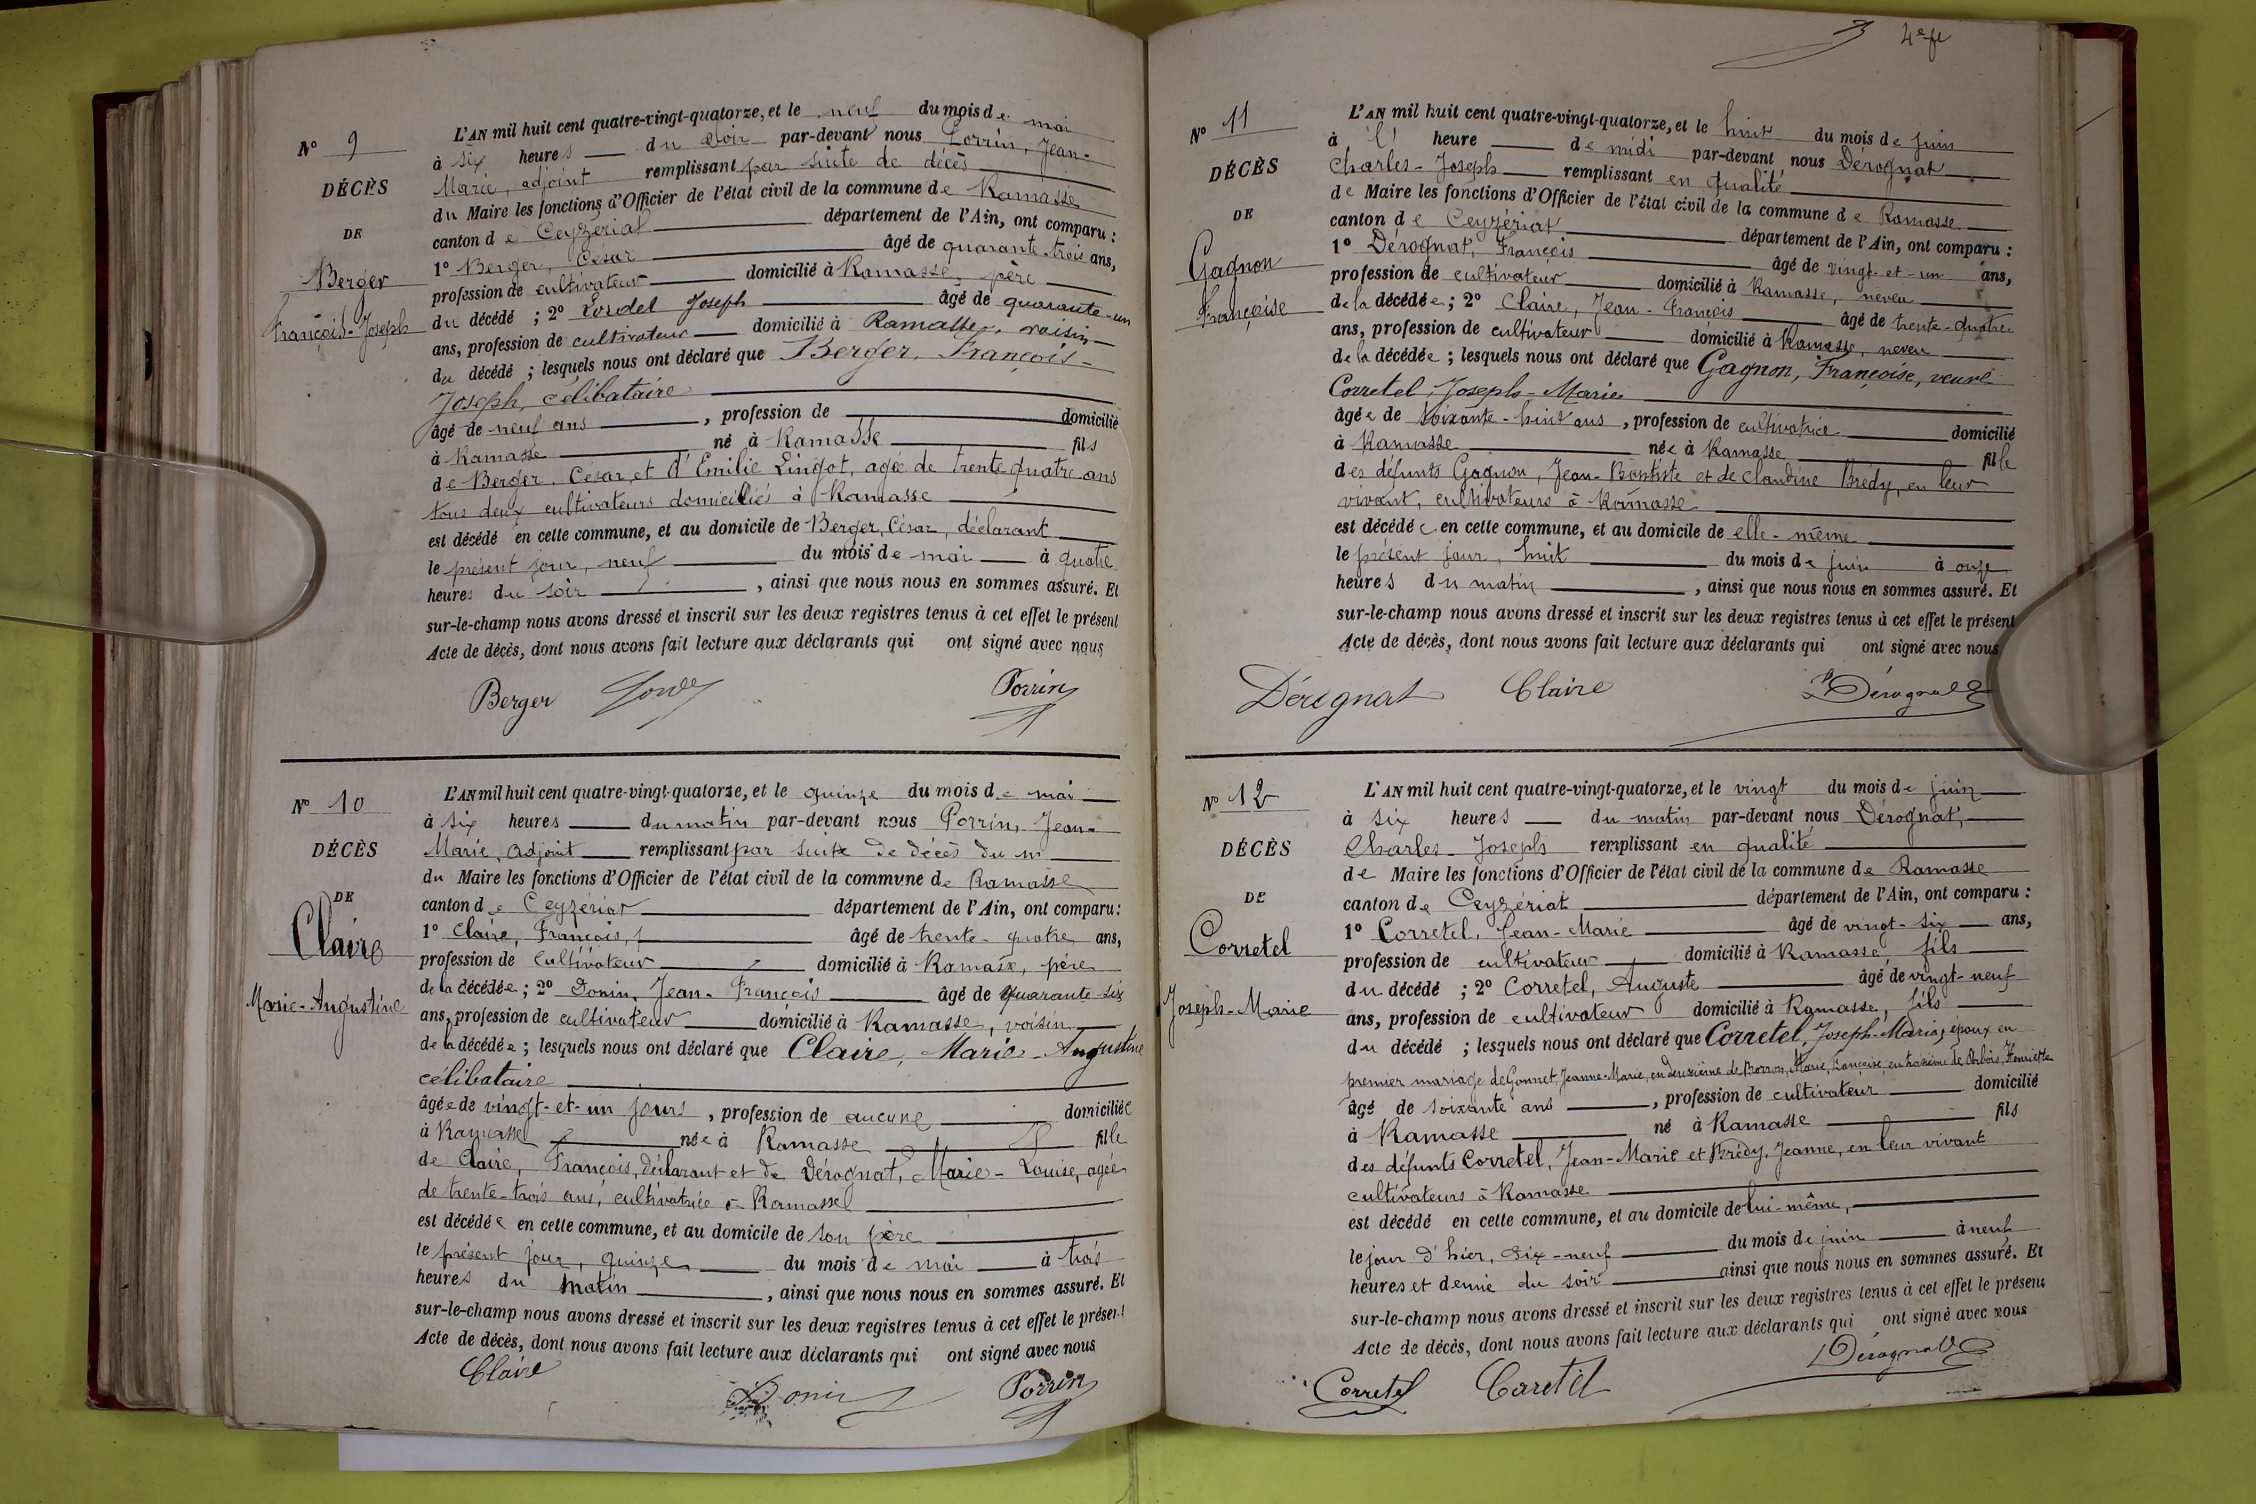 N° 9
DÉCÈS
DE
Berger
François-Joseph
L'AN mil huit cent quatre-vingt-quatorze, et le neuf du mois de mai
à six heures du soir par-devant nous Porrin, Jean-
Marie, adjoint remplissant par suite de décès
du Maire les fonctions d'Officier de l'état civil de la commune de Ramasse
canton de Ceyzériat département de l'Ain, ont comparu :
1° Berger, César âgé de quarante-trois ans,
profession de cultivateur domicilié à Ramasse, père
du décédé ; 2° Joseph âgé de quarante-un
ans, profession de cultivateur domicilié à Ramasse, voisin
du décédé ; lesquels nous ont déclaré que Berger, François-
Joseph, célibataire
âgé de neuf ans, profession de domicilié
à Ramasse né à Ramasse fils
de Berger, César, et d'Emilie Lingot, agée de trente quatre ans
tous deux cultivateurs domiciliés à Ramasse
est décédé en cette commune, et au domicile de Berger, César, déclarant
le présent jour, neuf du mois de mai à quatre
heures du soir, ainsi que nous nous en sommes assuré. Et
sur-le-champ nous avons dressé et inscrit sur les deux registres tenus à cet effet le présent
Acte de décès, dont nous avons fait lecture aux déclarants qui ont signé avec nous
Berger Porrin
N° 10
DÉCÈS
DE
Claire
Marie-Augustine
L'AN mil huit cent quatre-vingt-quatorze, et le quinze du mois de mai
à six heures du matin par-devant nous Porrin, Jean-
Marie, adjoint remplissant par suite de décès du m
du Maire les fonctions d'Officier de l'état civil de la commune de Ramasse
canton de Ceyzériat département de l'Ain, ont comparu :
1° Claire, François, âgé de trente-quatre ans,
profession de cultivateur domicilié à Ramasse, père
de la décédée ; 2° Donin, Jean-François âgé de quarante-six
ans, profession de cultivateur domicilié à Ramasse, voisin
de la décédée ; lesquels nous ont déclaré que Claire, Marie-Augustine
célibataire
âgée de vingt-et-un jours, profession de aucune domiciliée
à Ramasse née à Ramasse fille
de Claire, François, déclarant et de Dérognat, Marie-Louise, agée
de trente-trois ans, cultivatrice à Ramasse
est décédée en cette commune, et au domicile de son père
le présent jour, quinze du mois de mai à trois
heures du matin, ainsi que nous nous en sommes assuré. Et
sur-le-champ nous avons dressé et inscrit sur les deux registres tenus à cet effet le présent
Acte de décès, dont nous avons fait lecture aux déclarants qui ont signé avec nous
Claire Donin Porrin
4e fe
N° 11
DÉCÈS
DE
Gagnon
Françoise
L'AN mil huit cent quatre-vingt-quatorze, et le huit du mois de juin
à l' heure de midi par-devant nous Dérognat
Charles-Joseph remplissant en qualité
de Maire les fonctions d'Officier de l'état civil de la commune de Ramasse
canton de Ceyzériat département de l'Ain, ont comparu :
1° Dérognat, François âgé de vingt-et-un ans,
profession de cultivateur domicilié à Ramasse, neveu
de la décédée ; 2° Claire, Jean-François âgé de trente-quatre
ans, profession de cultivateur domicilié à Ramasse, neveu
de la décédée ; lesquels nous ont déclaré que Gagnon, Françoise, veuve
Corretel, Joseph-Marie
âgée de soixante-huit ans, profession de cultivatrice domicilié
à Ramasse née à Ramasse fille
des défunts Gagnon, Jean-Baptiste et de Claudine Brédy, en leur
vivant, cultivateurs à Ramasse
est décédée en cette commune, et au domicile de elle-même
le présent jour, huit du mois de juin à onze
heures du matin, ainsi que nous nous en sommes assuré. Et
sur-le-champ nous avons dressé et inscrit sur les deux registres tenus à cet effet le présent
Acte de décès, dont nous avons fait lecture aux déclarants qui ont signé avec nous
Dérognat Claire Dérognat
N° 12
DÉCÈS
DE
Corretel
Joseph-Marie
L'AN mil huit cent quatre-vingt-quatorze, et le vingt du mois de juin
à six heures du matin par-devant nous Dérognat,
Charles-Joseph remplissant en qualité
de Maire les fonctions d'Officier de l'état civil de la commune de Ramasse
canton de Ceyzériat département de l'Ain, ont comparu :
1° Corretel, Jean-Marie âgé de vingt-six ans,
profession de cultivateur domicilié à Ramasse, fils
du décédé ; 2° Corretel, Auguste âgé de vingt-neuf
ans, profession de cultivateur domicilié à Ramasse, fils
du décédé ; lesquels nous ont déclaré que Corretel, Joseph-Marie, époux en
premier mariage de Gonnet, Jeanne-Marie, en deuxième de Borron, Marie, Françoise, en troisième de Orbois, Henriette
âgé de soixante ans, profession de cultivateur domicilié
à Ramasse né à Ramasse fils
des défunts Corretel, Jean-Marie et Brédy, Jeanne, en leur vivant
cultivateurs à Ramasse
est décédé en cette commune, et au domicile de lui-même,
le jour d'hier, dix-neuf du mois de juin à neuf
heures et demie du soir ainsi que nous nous en sommes assuré. Et
sur-le-champ nous avons dressé et inscrit sur les deux registres tenus à cet effet le présent
Acte de décès, dont nous avons fait lecture aux déclarants qui ont signé avec nous
Corretel Corretel Dérognat